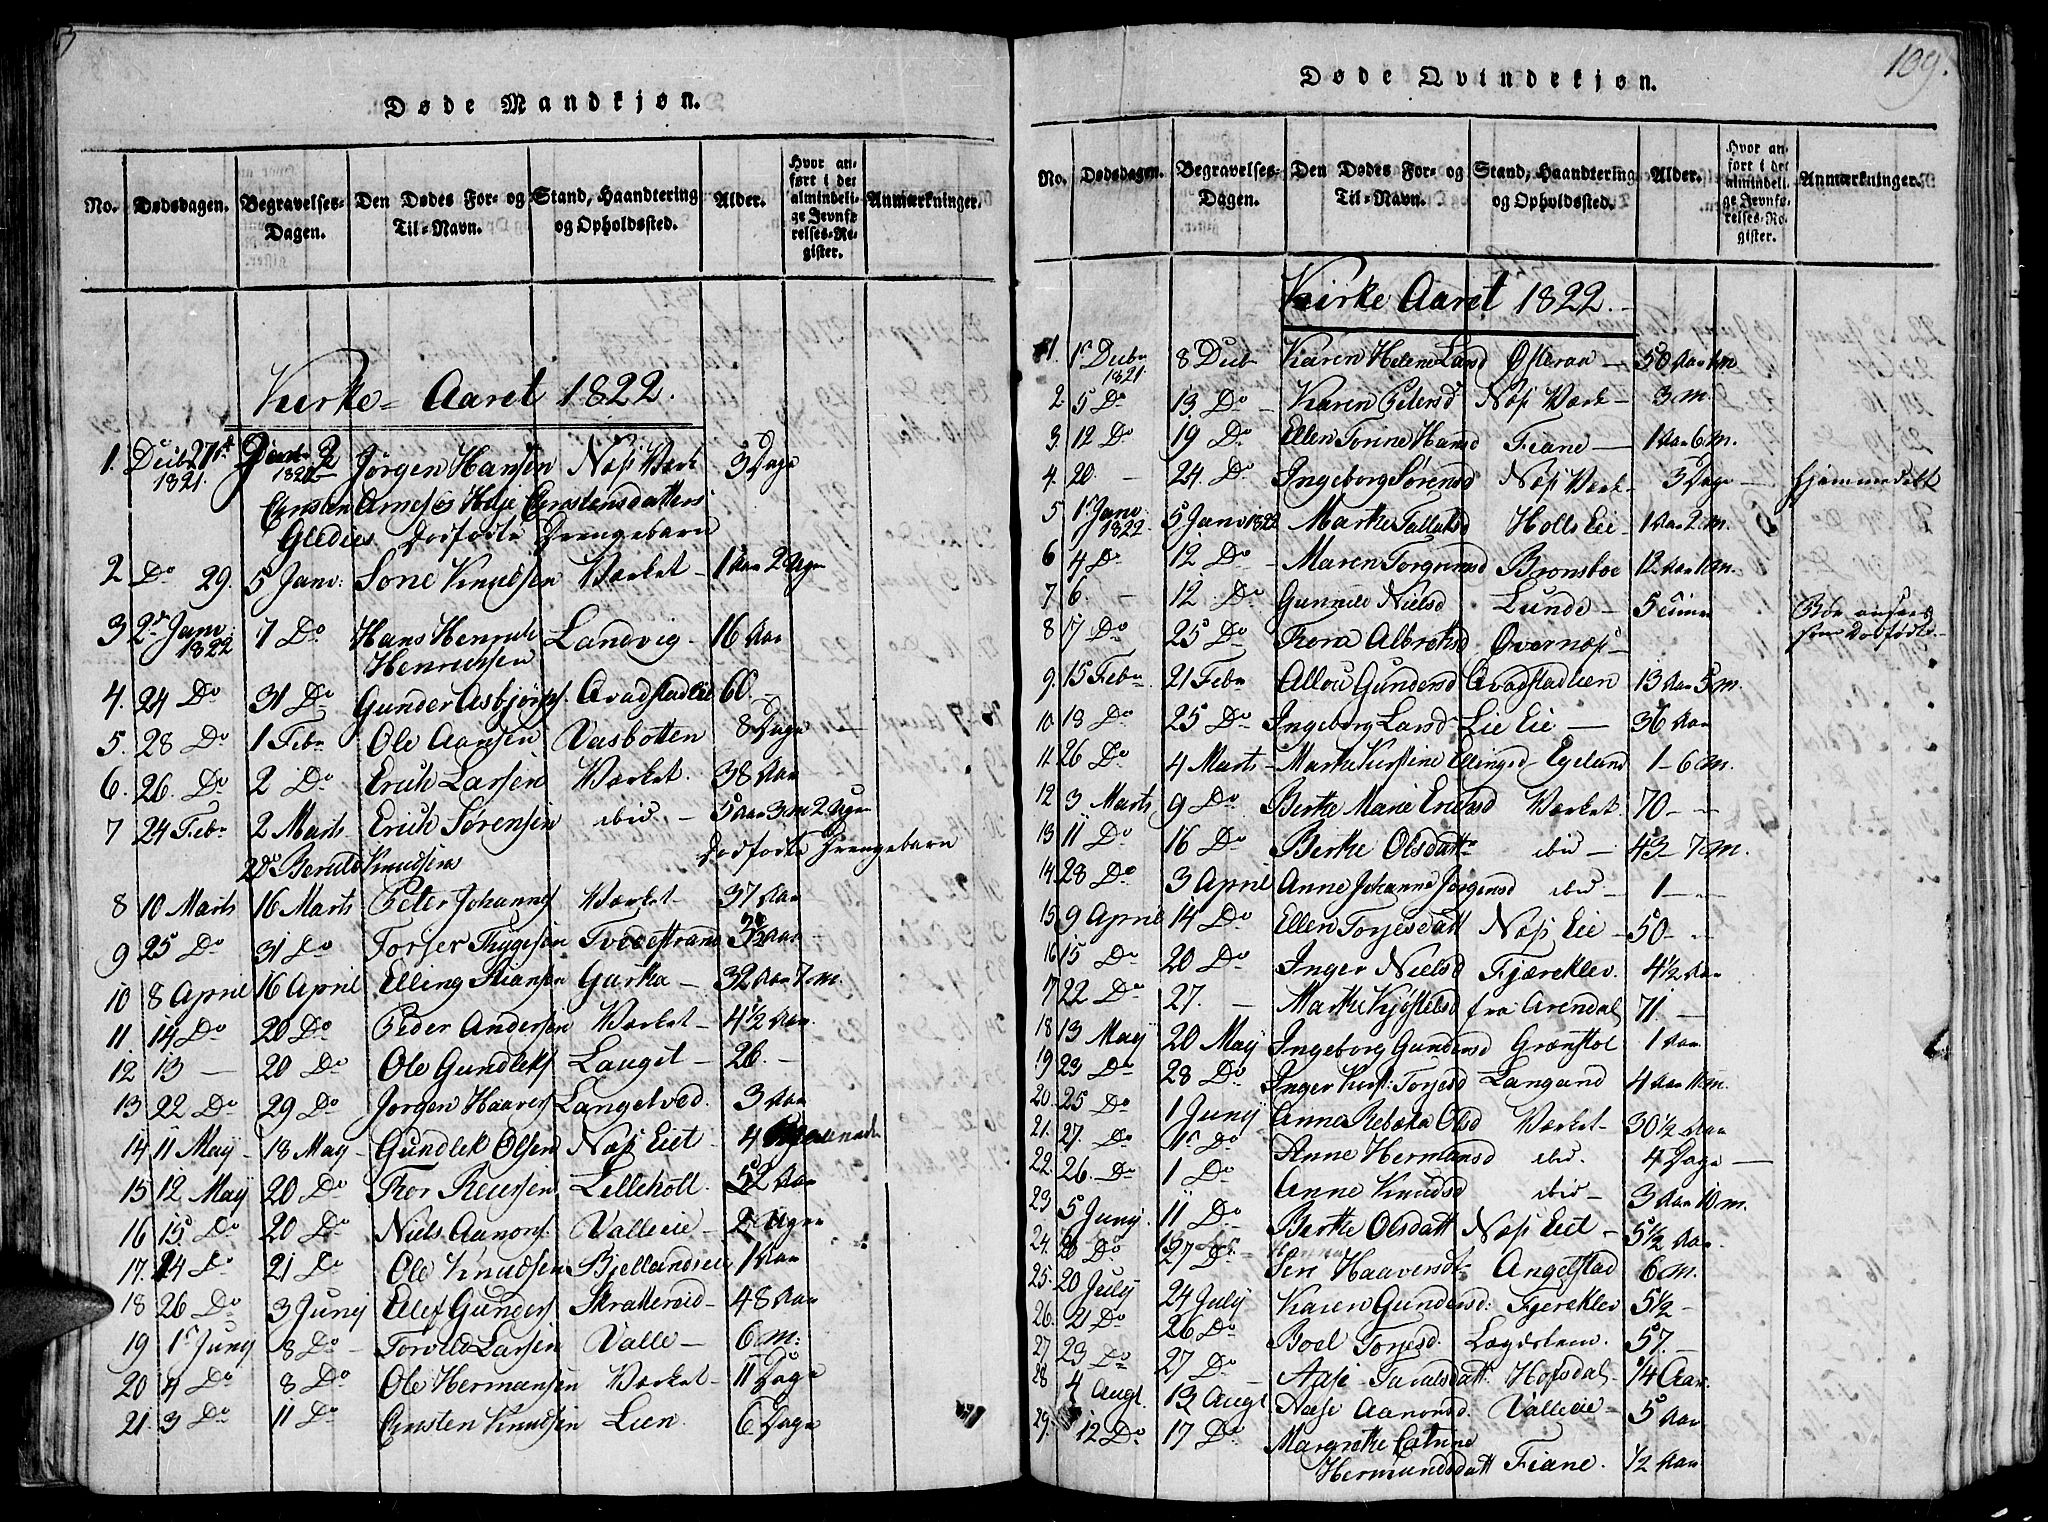 Døde Mandkjøn.
No. Dødsdagen. Begravelses-Dagen. Den Dødes For- og Til-Navn. Stand, Haandtering og Opholdssted. Alder. Hvor anført i det almindelige Jevnførelses-Register. Anmærkninger.
Kirke-Aaret 1822.
1. Decbr 27de 1821. 2 1822 Jørgen Hansen Næs Værk 3 Dage
Dødfødte Drengebarn
2 Do 29. 5 Janv: Knudsen Værket 1 Aar 2 Uger
3 2de Janv 1822 7 Do Hans Henrik Henrichsen Landvig 16 Aar
4. 24 Do 31 Do Gunder Asbjørns. 60. -
5. 28 Do 1 Febr Ole Aansen Vasbotten 8 Dage
6. 26. Do 2 Do Erich Larsen Værket. 38 Aar
7 24 Febr 2 Marts Erich Sørensen ibid. - 5 Aar 3 m 2 Uger
Knudsens Dødfødte Drengebarn
8 10 Marts 16 Marts Peter Johannes Værket 37 Aar
9 25 Do 31 Do Torjer Thygesen Tvedestrand
10 8 April 16 April Elling Gurka - 32 Aar 7 m.
11 14 Do 20 Do Peder Andersen Værket - 4½ Aar.
12 13 - 20 Do Ole Gundleks Lauget - 26. -
13 22 Do 29 Do Jørgen Haavers Langelved. 3 Aar
14 11 May 18 May Gundlek Olsen Næs Eiet - 4
15 12 May 20 Do Thor Lilleholt. 52 Aar
16 15 Do 20 Do Niels Aanons. Valleeie - 2 Uger
17. 24 Do 21 Do Ole Knudsen Bjellandseie 1 Aar
18 26 Do 3 Junij Elef Gunders - 48 Aar
19 1r Junij 8 Do Torvild Larsen Valle - 6 m:
20 4 Do 8 Do Ole Hermansen Værket - 11 Dage
21. 3 Do 11 Do Knudsen Lien. 6 Dage
109.
Døde Qvindekjøn.
No. Dødsdagen. Begravelses-Dagen. Den Dødes For- og Til-Navn. Stand, Haandtering og Opholdssted. Alder. Hvor anført i det almindelige Jevnførelses-Register. Anmærkninger.
Kirke Aaret 1822.
1. 1r Decbr 1821. 8 Decb Karen Helene Østeraa - 50 Aar
2. 5 Do 13. Do Karen Peters Næs Værk - 3 m.
3. 12 Do 19 Do Ellen Tonne Hansd Fiane - 1 Aar 6 m.
4. 20. - 24. Do Ingeborg Sørensd Næs Værk - 3 Dage - hjemmedøbt
5 1r Janv 1822 5 Janv 1822 Marthe Tallaksd Holts Eie 1 Aar 2 m.
6 4 Do 12 Do Maren Torgrimsd Bronsboe 12 Aar 1 m.
7 6. - 12 Do Gunnild Nielsd Lunde -
8 17 Do 25 Do Thora Albrektsd Øvernæs - Bør ansees som Dødfødt
9. 15 Febr 21 Febr Allou Gundersd 13 Aar 5 m.
10. 18 Do 25 Do Ingeborg Larsd Lie Eie - 36 Aar
11. 26 Do 4 Marts Marthe Kirstine Ellingsd Egeland 1 - 6 m.
12 3 Marts 9 Do Berthe Marie Ericksd Værket. 70 - -
13 11 Do 16 Do Birthe Olsdattr ibid - 43 - 7 m.
14. 28 Do 3 April Anne Johanne Jørgensd ibid - 1 - -
15 9 April 14 Do Ellen Torjesdatt Næs Eie - 50 - -
16 15 Do 20 Do Inger Nielsd Fjæreklev. 4½ Aar
17 22 Do 27. - Marthe fra Arendal 71. -
18 13 May 20 May Ingeborg Gundersd Grønstøl 1 Aar
19 23 Do 28 Do Inger Kirst: Torjesd Langand 4 Aar 11 m.
20. 25 Do 1 Junij Anne Rebeka Olsd Værket - 30½ Aar
21. 27. Do 1r Do Anne Hermansd ibid. 4 Dage -
22. 26 Do 1 Do Anne Knudsd ibid - 3 Aar 10 m.
23 5 Junij 11 Do Berthe Olsdatt Næs Eiet - 5½ Aar
24. 20 Do 27 Do Haaversdt Angelstad 6 m.
25. 20 July 24 July Karen Gundersd: Fjereklev 5½ -
26. 21 Do 26 Do Boel Torjesd. 57. -
27 23 Do 27 Do Aase Hofsdal - ¼ Aar.
28 4 Augt 13 Augt Aanonsd. Valleeie - 5 Aar
29. 12 Do 17 Do Margrethe Hermundsdatt Fiane. ½ Aar